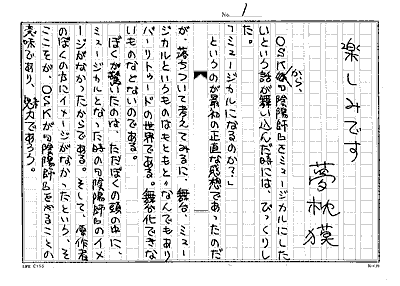 No. 1
楽しみです
夢枕獏
OSKから『陰陽師』をミュージカルにした
いという話が舞い込んだ時には、びっくりし
た。
「ミュージカルになるのか?」
というのが最初の正直な感想であったのだ
が、落ちついて考えてみるに、舞台、ミュー
ジカルというものはもともと、なんでもあり
バーリトゥードの世界である。舞台化できな
いものなどないのである。
ぼくが驚いたのは、ただぼくの頭の中に、
ミュージカルとなった時の『陰陽師』のイメ
ージがなかったからである。そして、原作者
のぼくの方にイメージがなかったという、そ
こここが、OSKが『陰陽師』をやることの
意味であり、魅力であろう。